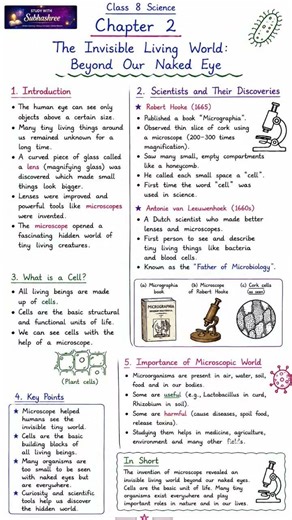 STUDY WITH
Subhashree
Class 8 Science
Chapter 2
The Invisible Living World:
Beyond Our Naked Eye
1. Introduction
The human eye can see only
objects above a certain size.
Many tiny living things around
us remained unknown for a
long time.
A curved piece of glass called
a lens (magnifying glass) was
discovered which made small
things look bigger.
Lenses were improved and
powerful tools like microscopes
were invented.
The microscope opened a
fascinating hidden world of
tiny living creatures.
2. Scientists and Their Discoveries
★ Robert Hooke (1665)
Published a book "Micrographia".
Observed thin slice of cork using
a microscope (200–300 times
magnification).
Saw many small, empty compartments
like a honeycomb.
He called each small space a "cell".
First time the word "cell" was
used in science.
★ Antonie van Leeuwenhoek (1660s)
A Dutch scientist who made better
lenses and microscopes.
First person to see and describe
tiny living things like bacteria
and blood cells.
Known as the "Father of Microbiology".
(a) Micrographia
book
(b) Microscope
of Robert Hooke
(c) Cork cells
(as seen)
MICROGRAPHIA
3. What is a Cell?
All living beings are made
up of cells.
Cells are the basic structural
and functional units of life.
We can see cells with the
help of a microscope.
(Plant cells)
4. Key Points
★ Microscope helped
humans see the
invisible tiny world.
★ Cells are the basic
building blocks
of all living beings.
★ Many organisms are
too small to be seen
with naked eyes but
are everywhere.
★ Curiosity and scientific
tools help us discover
the hidden world.
5. Importance of Microscopic World
Microorganisms are present in air, water, soil,
food and in our bodies.
Some are useful (e.g., Lactobacillus in curd,
Rhizobium in soil).
Some are harmful (cause diseases, spoil food,
release toxins).
Studying them helps in medicine, agriculture,
environment and many other fields.
In Short
The invention of microscope revealed an
invisible living world beyond our naked eyes.
Cells are the basic unit of life. Many tiny
organisms exist everywhere and play
important roles in nature and in our lives.